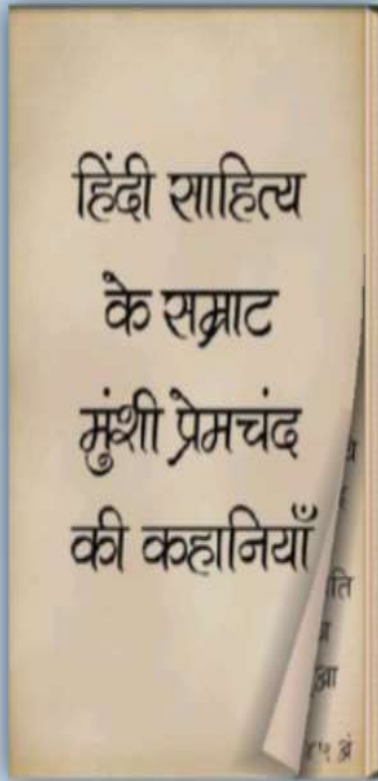 हिंदी साहित्य
के सम्राट
मुंशी प्रेमचंद
की कहानियाँ